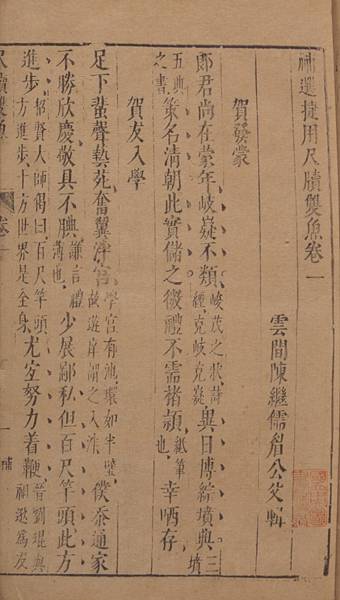 補選捷用尺牘雙魚卷一
雲間陳繼儒眉公父輯
賀發蒙
郎君尚在蒙年岐嶷不類峻茂之狀詩經克岐克嶷異日博綜墳典三墳
五典之書策名清朝此實儲之微禮不需楮穎紙筆也幸哂存
賀友入學
足下蜚聲藝苑奮翼泮宮學宮有池環如半璧故遊庠謂之入泮僕忝通家
不勝欣慶敬具不腆謙言禮薄也少展鄙私但百尺竿頭此方
進步招賢大師偈曰百尺竿頭方進步十方世界是全身尤宜努力着鞭晉劉琨與祖逖為友
尺牘雙魚 卷一 一 補